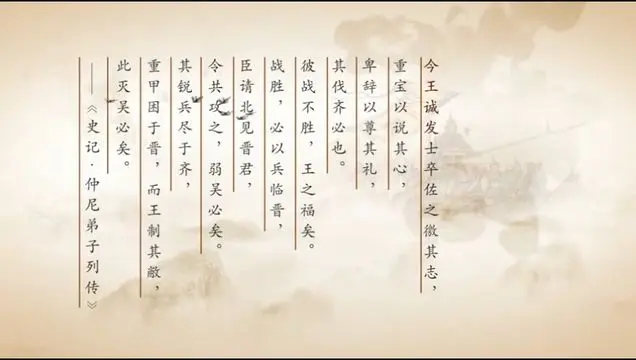 今王诚发士卒佐之徼其志，
重宝以说其心，
卑辞以尊其礼，
其伐齐必也。
彼战不胜，王之福矣。
战胜，必以兵临晋，
臣请北见晋君，
令共攻之，弱吴必矣。
其锐兵尽于齐，
重甲困于晋，而王制其敝，
此灭吴必矣。
——《史记·仲尼弟子列传》